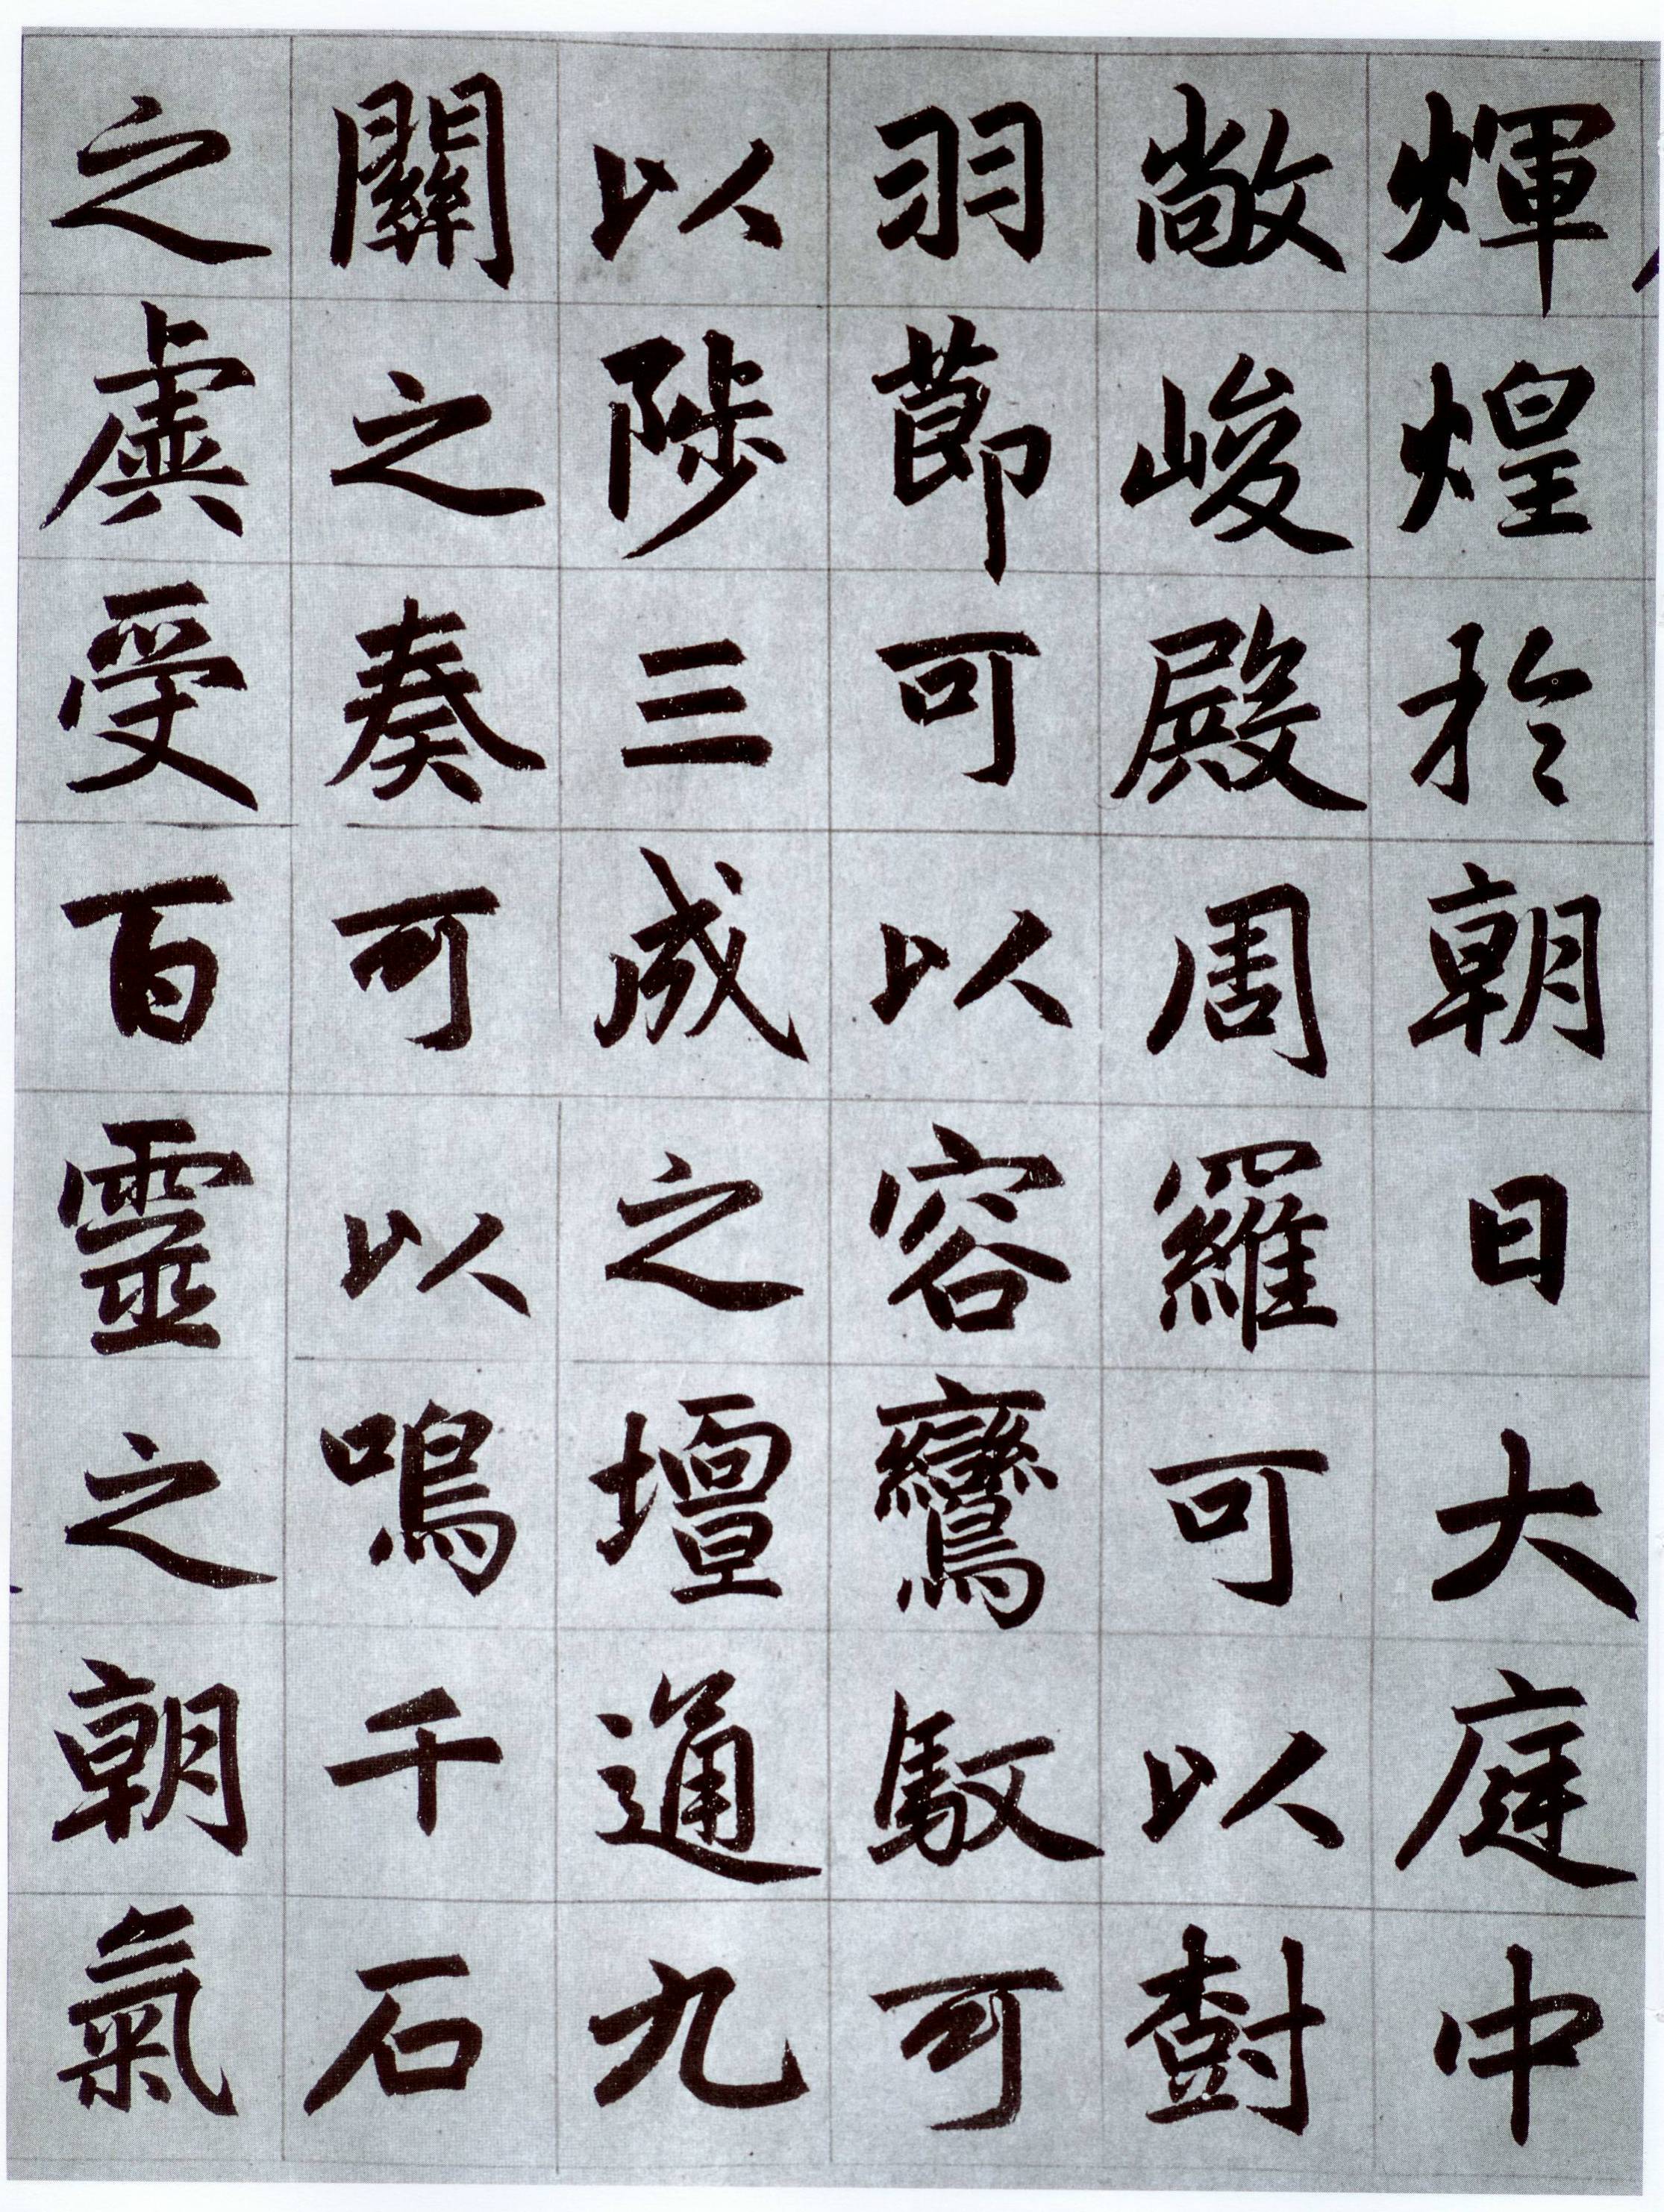 輝煌於朝日大庭中
敞峻殿周羅可以樹
羽莭可以容鸞馭可
以陟三成之壇通九
關之奏可以鳴千石
之虡受百靈之朝氣